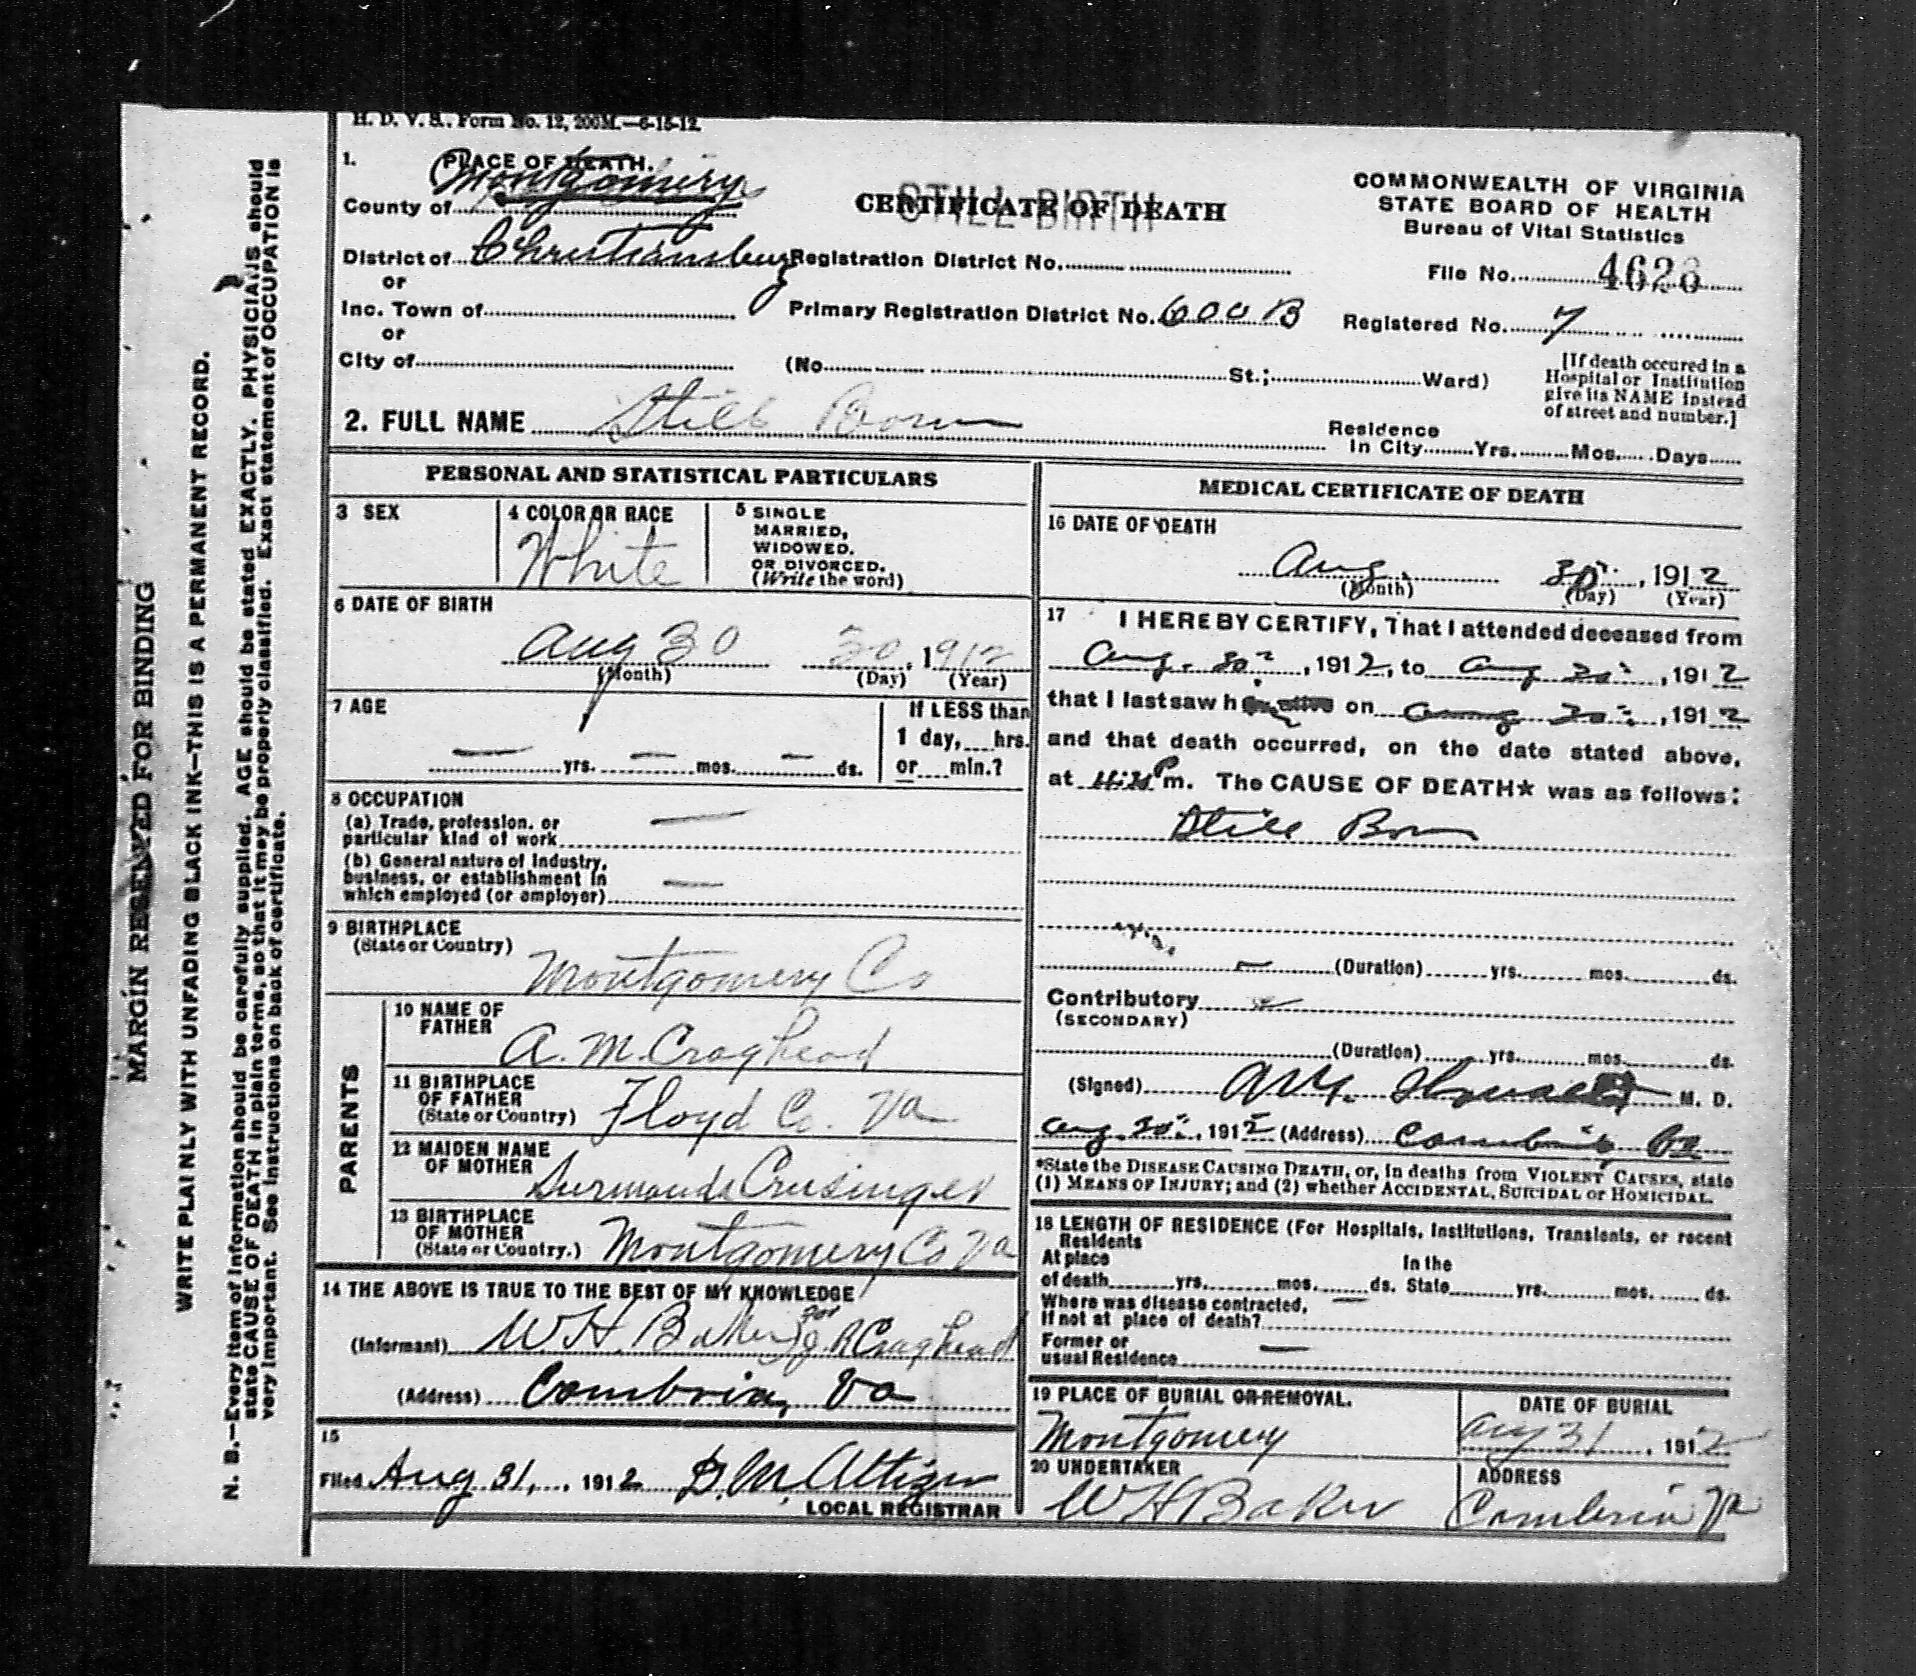 H. D. V. S., Form No. 12, 200M.—6-15-12.
1. PLACE OF DEATH.
County of Montgomery
STILL BIRTH
CERTIFICATE OF DEATH
COMMONWEALTH OF VIRGINIA
STATE BOARD OF HEALTH
Bureau of Vital Statistics
District of Christiansburg Registration District No.
File No. 4626
or
Inc. Town of Primary Registration District No. 600 B
Registered No. 7
or
City of (No. St.; Ward)
[If death occured in a
Hospital or Institution
give its NAME instead
of street and number.]
2. FULL NAME Still Born
Residence
In City Yrs. Mos. Days
PERSONAL AND STATISTICAL PARTICULARS
3 SEX
4 COLOR OR RACE
White
5 SINGLE
MARRIED,
WIDOWED.
OR DIVORCED.
(Write the word)
6 DATE OF BIRTH
Aug 30 30, 1912
(Month) (Day) (Year)
7 AGE
— yrs. — mos. — ds.
If LESS than
1 day, hrs.
or min.?
8 OCCUPATION
(a) Trade, profession, or
particular kind of work —
(b) General nature of Industry,
business, or establishment in
which employed (or amployer) —
9 BIRTHPLACE
(State or Country)
Montgomery Co
PARENTS
10 NAME OF
FATHER
A. M. Craghead
11 BIRTHPLACE
OF FATHER
(State or Country) Floyd Co. Va
12 MAIDEN NAME
OF MOTHER
Crusinger
13 BIRTHPLACE
OF MOTHER
(State or Country.) Montgomery Co Va
14 THE ABOVE IS TRUE TO THE BEST OF MY KNOWLEDGE
(Informant) W H. Baker for J. R Craghead
(Address) Cambria, Va
15
Filed Aug 31, 1912 D. M. Altizer
LOCAL REGISTRAR
MEDICAL CERTIFICATE OF DEATH
16 DATE OF DEATH
Aug. 30", 1912
(Month) (Day) (Year)
17 I HEREBY CERTIFY, That I attended deceased from
Aug. 30", 1912, to Aug 30", 1912
that I last saw h on Aug 30", 1912
and that death occurred, on the date stated above,
at P m. The CAUSE OF DEATH* was as follows:
Still Born
— (Duration) yrs. mos. ds.
Contributory
(SECONDARY)
(Duration) yrs. mos. ds.
(Signed) M. D.
Aug. 30", 1912 (Address) Cambria Va
*State the DISEASE CAUSING DEATH, or, in deaths from VIOLENT CAUSES, state
(1) MEANS OF INJURY; and (2) whether ACCIDENTAL, SUICIDAL or HOMICIDAL.
18 LENGTH OF RESIDENCE (For Hospitals, Institutions, Transients, or recent
Residents
At place In the
of death yrs. mos. ds. State yrs. mos. ds.
Where was disease contracted,
If not at place of death? —
Former or
usual Residence —
19 PLACE OF BURIAL OR REMOVAL.
Montgomery
DATE OF BURIAL
Aug 31, 1912
20 UNDERTAKER
W H Baker
ADDRESS
Cambria Va
MARGIN RESERVED FOR BINDING
WRITE PLAINLY WITH UNFADING BLACK INK—THIS IS A PERMANENT RECORD.
N. B.—Every item of information should be carefully supplied. AGE should be stated EXACTLY. PHYSICIANS should
state CAUSE OF DEATH in plain terms, so that it may be properly classified. Exact statement of OCCUPATION is
very important. See instructions on back of certificate.